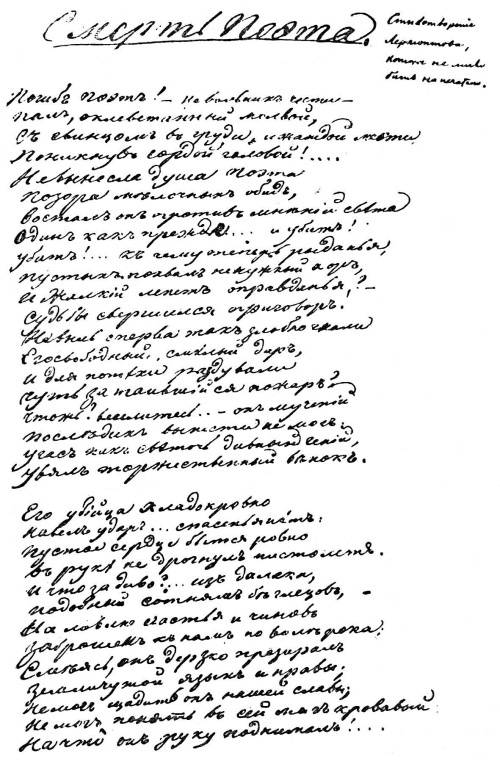 Смерть Поэта.
Стихотвореніе
Лермонтова,
которое не можетъ
быть напечатано.
Погибъ поэтъ! – невольникъ чести –
Палъ, оклеветанный молвой,
Съ свинцомъ въ груди, и жаждой мести
Поникнувъ гордой головой!....
Не вынесла душа поэта
Позора мелочныхъ обидъ,
Возсталъ онъ противъ мнѣній свѣта
Одинъ какъ прежде... и убитъ!
убитъ!... къ чему теперь рыданья,
пустыхъ похвалъ ненужный хоръ,
И жалкій лепетъ оправданья? –
Судьбы свершился приговоръ.
Не вы ль сперва такъ злобно гнали
Его свободный, смѣлый даръ,
и для потѣхи раздували
чуть затаившійся пожаръ?
чтожъ? веселитесь... – онъ мученій
послѣднихъ вынести не могъ:
угасъ какъ свѣточь дивный геній,
увялъ торжественный вѣнокъ.
Его убійца хладнокровно
навелъ ударъ... спасенья нѣтъ:
Пустое сердце бьется ровно
Въ рукѣ не дрогнулъ пистолетъ.
И что за диво?... изъ далека,
подобный сотнямъ бѣглецовъ, –
На ловлю счастья и чиновъ
Заброшенъ къ намъ по волѣ рока;
Смѣясь, онъ дерзко презиралъ
Земли чужой языкъ и нравы;
Не могъ щадить онъ нашей славы;
Не могъ понять въ сей мигъ кровавый
На что онъ руку поднималъ!....